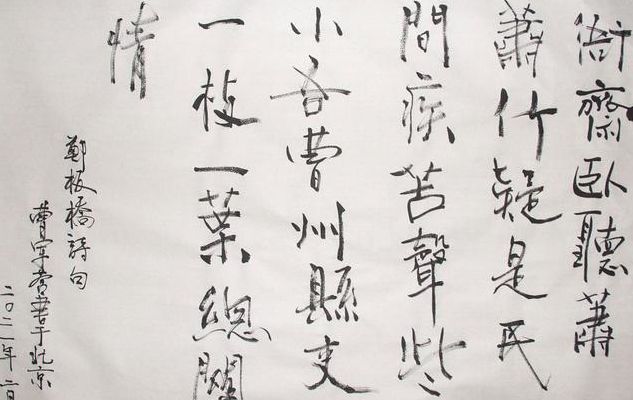 衙齋臥聽蕭
蕭竹疑是民
間疾苦聲些
小吾曹州縣吏
一枝一葉總關
情
鄭板橋詩句
曹書于北京
二〇二一年